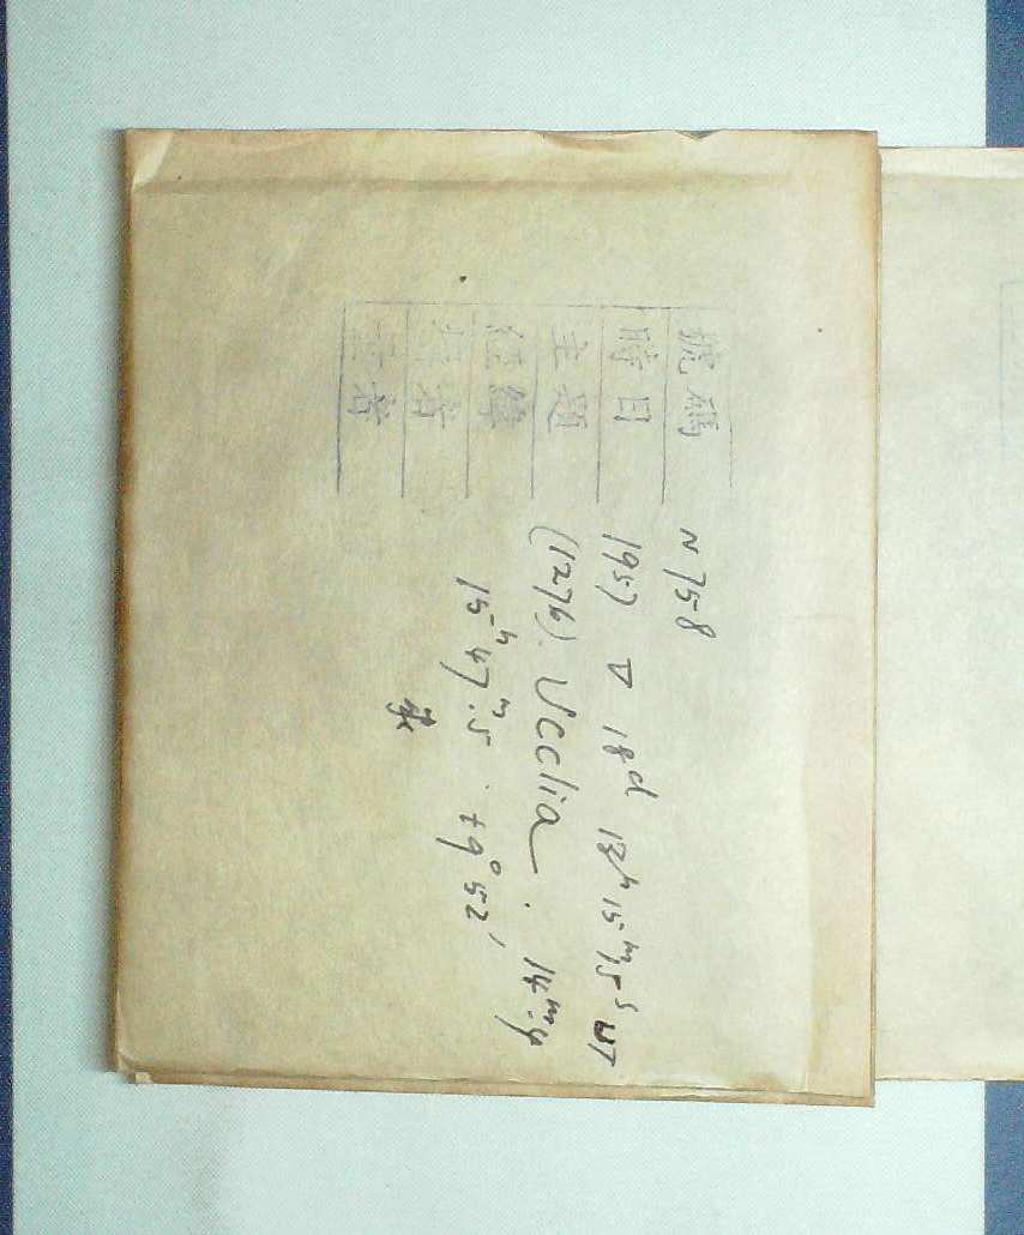 號碼 N 758
時日 1957 V 18d 13h 15m 15s UT
主題 (1276). Ucclia. 14m.4
經緯 15h 47m.5 . +9° 52′
者 張
者